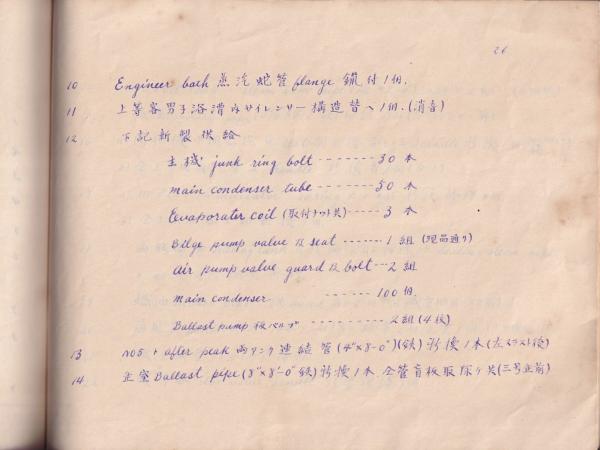 26
10 Engineer bath 蒸汽蛇管 flange 鑞付 1個.
11 上等客男子浴漕内サイレンサー構造替へ 1個.(消音)
12 下記新製供給
主機 junk ring bolt ------- 30 本
main condenser tube ------- 50 本
Evaporater coil (取付ナット共) ----- 3 本
Bilge pump valve 及 seat ------ 1 組 (現品通り)
Air pump valve guard 及 bolt -- 2 組
main condenser ------ 100 個
Ballast pump 板バルブ ------- 2組 (4枚)
13 No5 + after peak 両タンク連結管 (4"×8'-0")(鉄) 新換 1本
14 Ballast pipe (8"×8'-0" 鉄) 新換 1本 全管盲板取除ケ共 (三号正前)